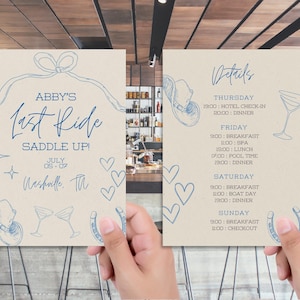 ABBY'S
Last Ride
SADDLE UP!
JULY
Nashville, TN
Details
THURSDAY
19:00 : HOTEL CHECK-IN
20:00 : DINNER
FRIDAY
9:00 : BREAKFAST
11:00 : SPA
12:00 : LUNCH
17:00 : POOL TIME
19:00 : DINNER
SATURDAY
9:00 : BREAKFAST
11:00 : BOAT DAY
19:00 : DINNER
SUNDAY
9:00 : BREAKFAST
12:00 : CHECKOUT